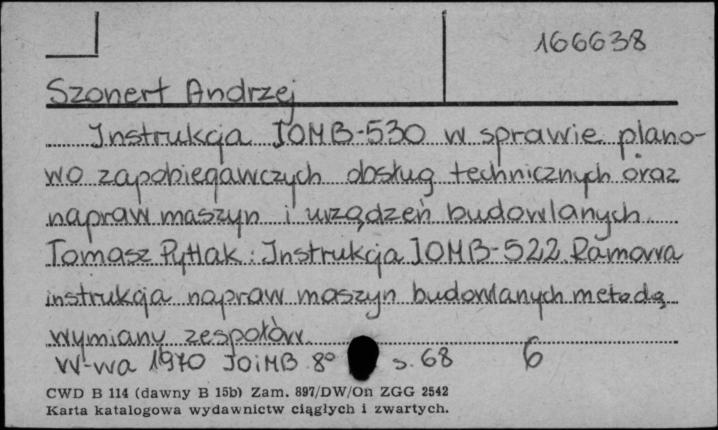 166638
Szonert Andrzej
Instrukcja IOMB-530 w sprawie plano-
wo zapobiegawczych obsług technicznych oraz
napraw maszyn i urządzeń budowlanych
Tomasz Pytlak: Instrukcja IOMB-522 Ramowa
instrukcja napraw maszyn budowlanych metodą
wymiany zespołów.
W-wa 1970 IOiMB 8° s. 68 6
CWD B 114 (dawny B 15b) Zam. 897/DW/On ZGG 2542
Karta katalogowa wydawnictw ciągłych i zwartych.